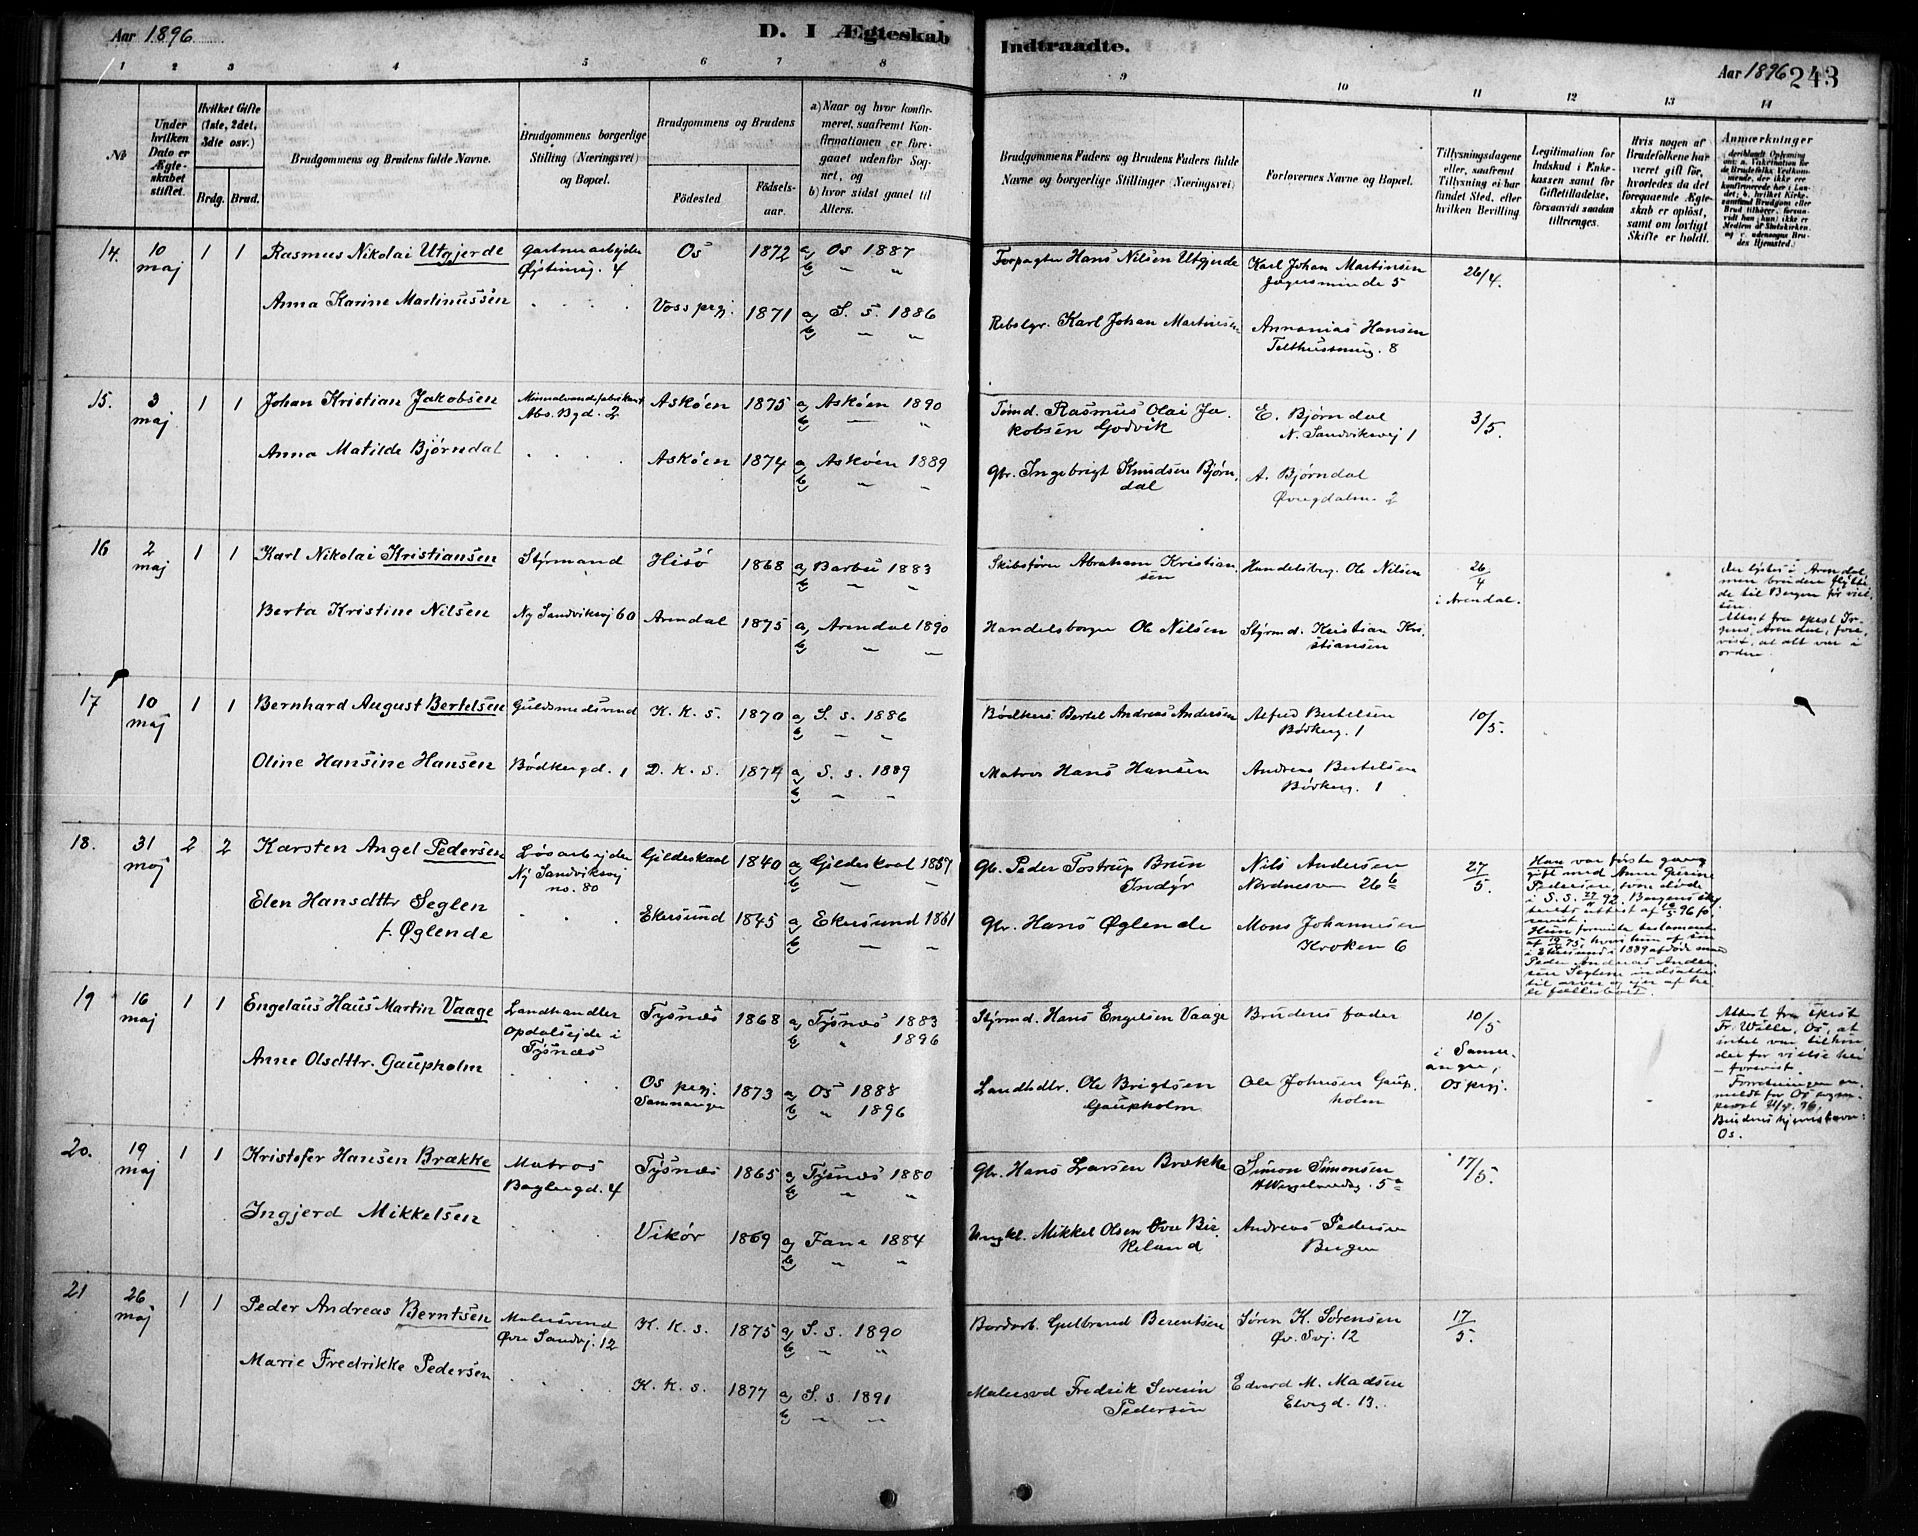 Aar 1896
D. I Ægteskab
Indtraadte.
Aar 1896 243
1 2 3 4 5 6 7 8
9 10 11 12 13 14
No
Under hvilken Dato er Ægteskabet stiftet.
Hvilket Gifte (1ste, 2det, 3die osv.)
Brdg. Brud.
Brudgommens og Brudens fulde Navne.
Brudgommens borgerlige Stilling (Næringsvei) og Bopæl.
Brudgommens og Brudens
Fødested
Fødsels-aar.
a) Naar og hvor konfirmeret, saafremt Konfirmationen er foregaaet udenfor Sognet, og
b) hvor sidst gaaet til Alters.
Brudgommens Faders og Brudens Faders fulde Navne og borgerlige Stillinger (Næringsvei)
Forlovernes Navne og Bopæl.
Tillysningsdagene eller, saafremt Tillysning ei har fundet Sted, efter hvilken Bevilling.
Legitimation for Indskud i Enkekassen samt for Giftetilladelse, forsaavidt saadan tiltrænges.
Hvis nogen af Brudefolkene har været gift før, hvorledes da det foregaaende Ægteskab er opløst, samt om lovligt Skifte er holdt.
Anmærkninger
14. 10 maj 1 1 Rasmus Nikolai Utgjerde Gartnerarbejder Os 1872 a) Os 1887 Forpagter Hans Nilsen Utgjerde Karl Johan Martinsen 26/4.
Øjstensvj. 4 b) " " Jægersminde 5
Anna Karine Martinussen Voss prgj. 1871 a) S. s. 1886 Rebslgr. Karl Johan Martinsen Annanias Hansen
b) " " 8
15. 3 maj 1 1 Johan Kristian Jakobsen Mineralvandsfabrikant Askøen 1875 a) Askøen 1890 Tømd. Rasmus Olai Ja- E. Bjørndal 3/5.
Abs. Bgd. 2 b) " " kobsen Godvik N. Sandviksvej 1
Anna Matilde Bjørndal Askøen 1874 a) Askøen 1889 Gbr. Ingebrigt Knudsen Bjørn- A. Bjørndal
b) " " dal Øvregdalm. 2
16 2 maj 1 1 Karl Nikolai Kristiansen Styrmand Hisö 1868 a) Barbu 1883 Skibsfører Abraham Kristian- Handelsbg. Ole Nilsen 26/4 i Arendal.
b) " " sen
Berta Kristine Nilsen Ny Sandviksvj 60 Arendal 1875 a) Arendal 1890 Handelsborger Ole Nilsen Styrmd. Kristian Kri-
b) " " stiansen
Der lystes i Arendal,
men bruden flytte-
de til Bergen før viel-
sen.
17 10 maj 1 1 Bernhard August Bertelsen Guldsmedsvend K. k. s. 1870 a) S. s. 1886 Bødkers Bertel Andreas Andersen Alfred Bertelsen 10/5.
b) " " Bødkerg. 1
Oline Hansine Hansen Bödkergd. 1 D. k. s. 1874 a) S. s. 1889 Matros Hans Hansen Andreas Bertelsen
b) " " Bødkerg. 1
18. 31 maj 2 2 Karsten Angel Pedersen Løsarbejder Gildeskaal 1840 a) Gildeskaal 1857 Gb. Peder Tostrup Brun Nils Andersen 27/5.
Ny Sandviksvj no. 80 b) " " Indyr Nordnesvn 26 b
Elen Hansdttr Seglen Ekersund 1845 a) Ekersund 1861 Gbr. Hans Øglende Mons Johannesen
f. Øglende b) " " Kroken 6
Han var første gang
gift med Anne Gurine
Pedersen, som døde
19 16 maj 1 1 Engelaus Hans Martin Vaage Landhandler Tysnæs 1868 a) Tysnæs 1883 Styrmd. Hans Engelsen Vaage Brudens fader 10/5
Opdalsejde i Tysnæs b) " 1896
Anne Olsdttr. Gaupholm Os prgj. Samnanger 1873 a) Os 1888 Landhdlr. Ole Brigtsen Ole Johnsen Gaup-
b) " 1896 Gaupholm holm
i Samn-
anger,
Os prgj.
Attest fra spest
Fr. Wille, Os, at
intet var til hin-
der for vielse her
forevist.
20. 19 maj 1 1 Kristofer Hansen Brække Matros Tysnæs 1865 a) Tysnæs 1880 Gbr. Hans Larsen Brække Simon Simonsen 17/5.
Baglergd. 4 b) " " 5a
Ingjerd Mikkelsen Vikør 1869 a) Fane 1884 Ungkl. Mikkel Olsen Øvre Bir- Andreas Pedersen
b) " " keland Bergen
21 26 maj 1 1 Peder Andreas Berntsen Malersvend K. k. s. 1875 a) S. s. 1890 Bordarb. Gulbrand Berentsen Søren K. Sørensen 17/5.
Øvre Sandvj. 12 b) " " Øv. Svj. 12
Marie Fredrikke Pedersen K. k. s. 1877 a) S. s. 1891 Malersvd Fredrik Severin Edvard M. Madsen
b) " " Pedersen Elvegd. 13.